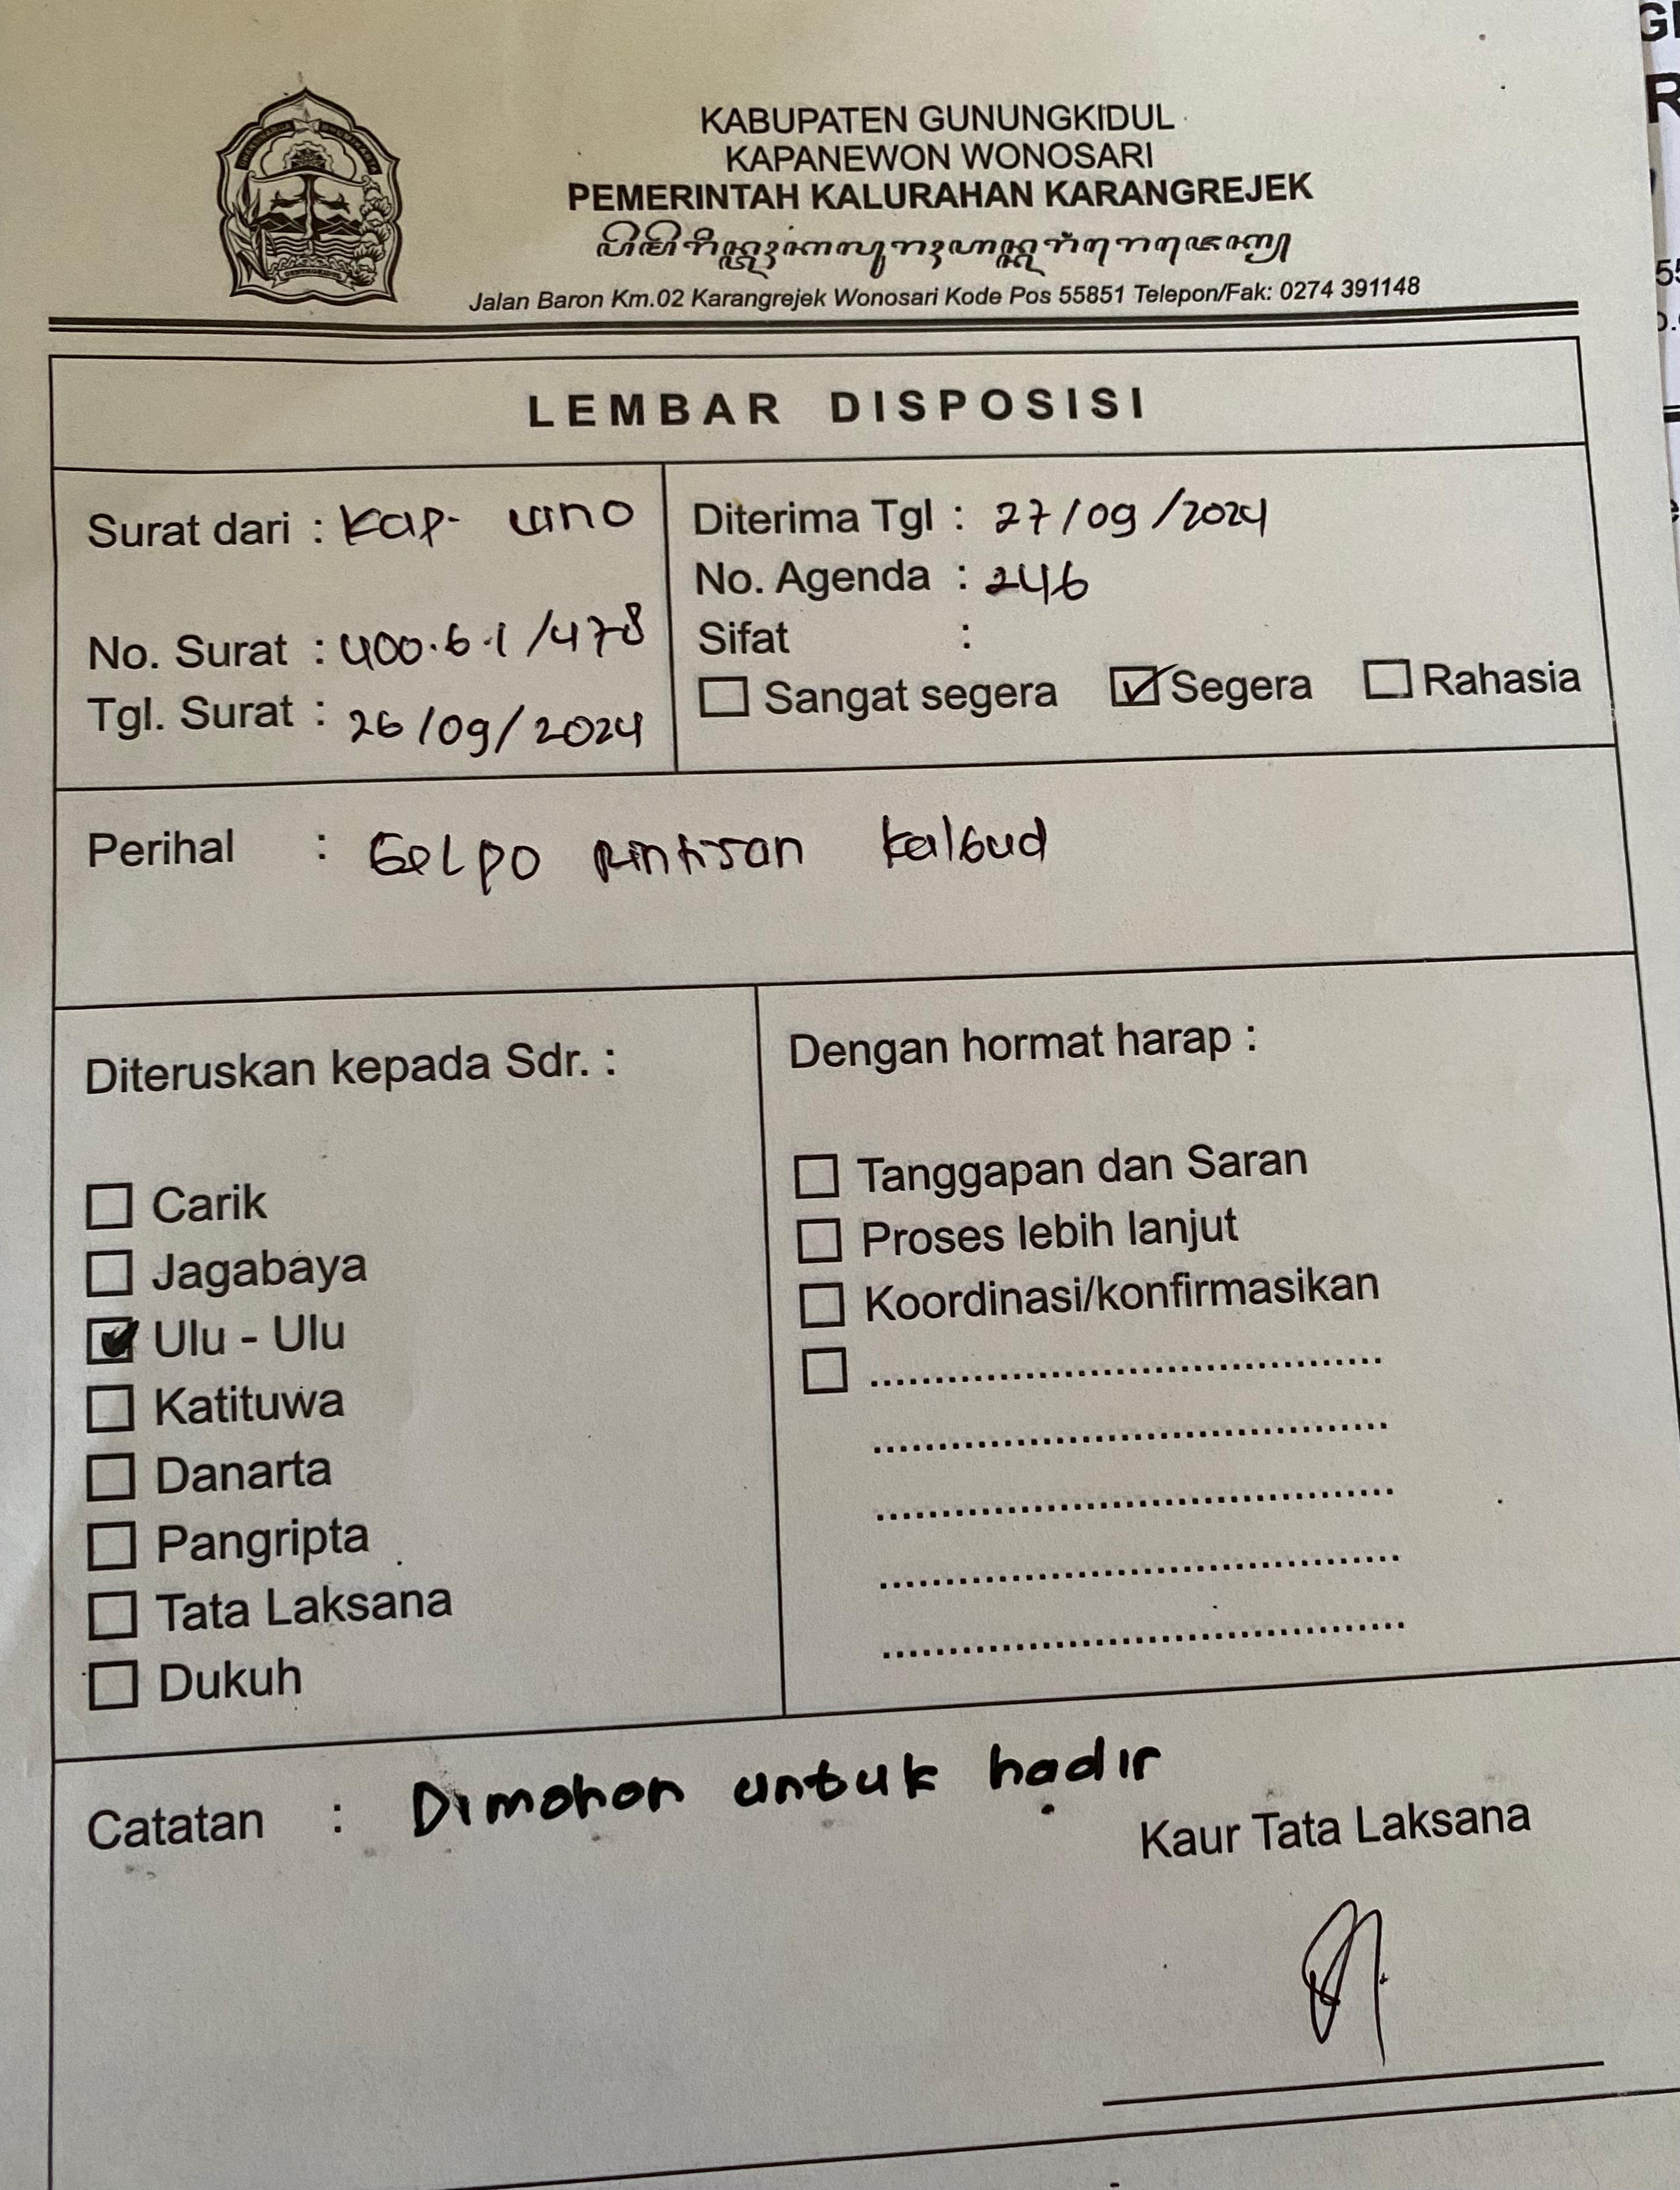 KABUPATEN GUNUNGKIDUL
KAPANEWON WONOSARI
PEMERINTAH KALURAHAN KARANGREJEK
Jalan Baron Km.02 Karangrejek Wonosari Kode Pos 55851 Telepon/Fak: 0274 391148
LEMBAR DISPOSISI
Surat dari : Kap. Wno
No. Surat : 400.6.1/478
Tgl. Surat : 26/09/2024
Diterima Tgl : 27/09/2024
No. Agenda : 246
Sifat :
Sangat segera Segera Rahasia
Perihal : Gelpo Rintisan Kalbud
Diteruskan kepada Sdr. :
Carik
Jagabaya
Ulu - Ulu
Katituwa
Danarta
Pangripta
Tata Laksana
Dukuh
Dengan hormat harap :
Tanggapan dan Saran
Proses lebih lanjut
Koordinasi/konfirmasikan
Catatan : Dimohon untuk hadir
Kaur Tata Laksana